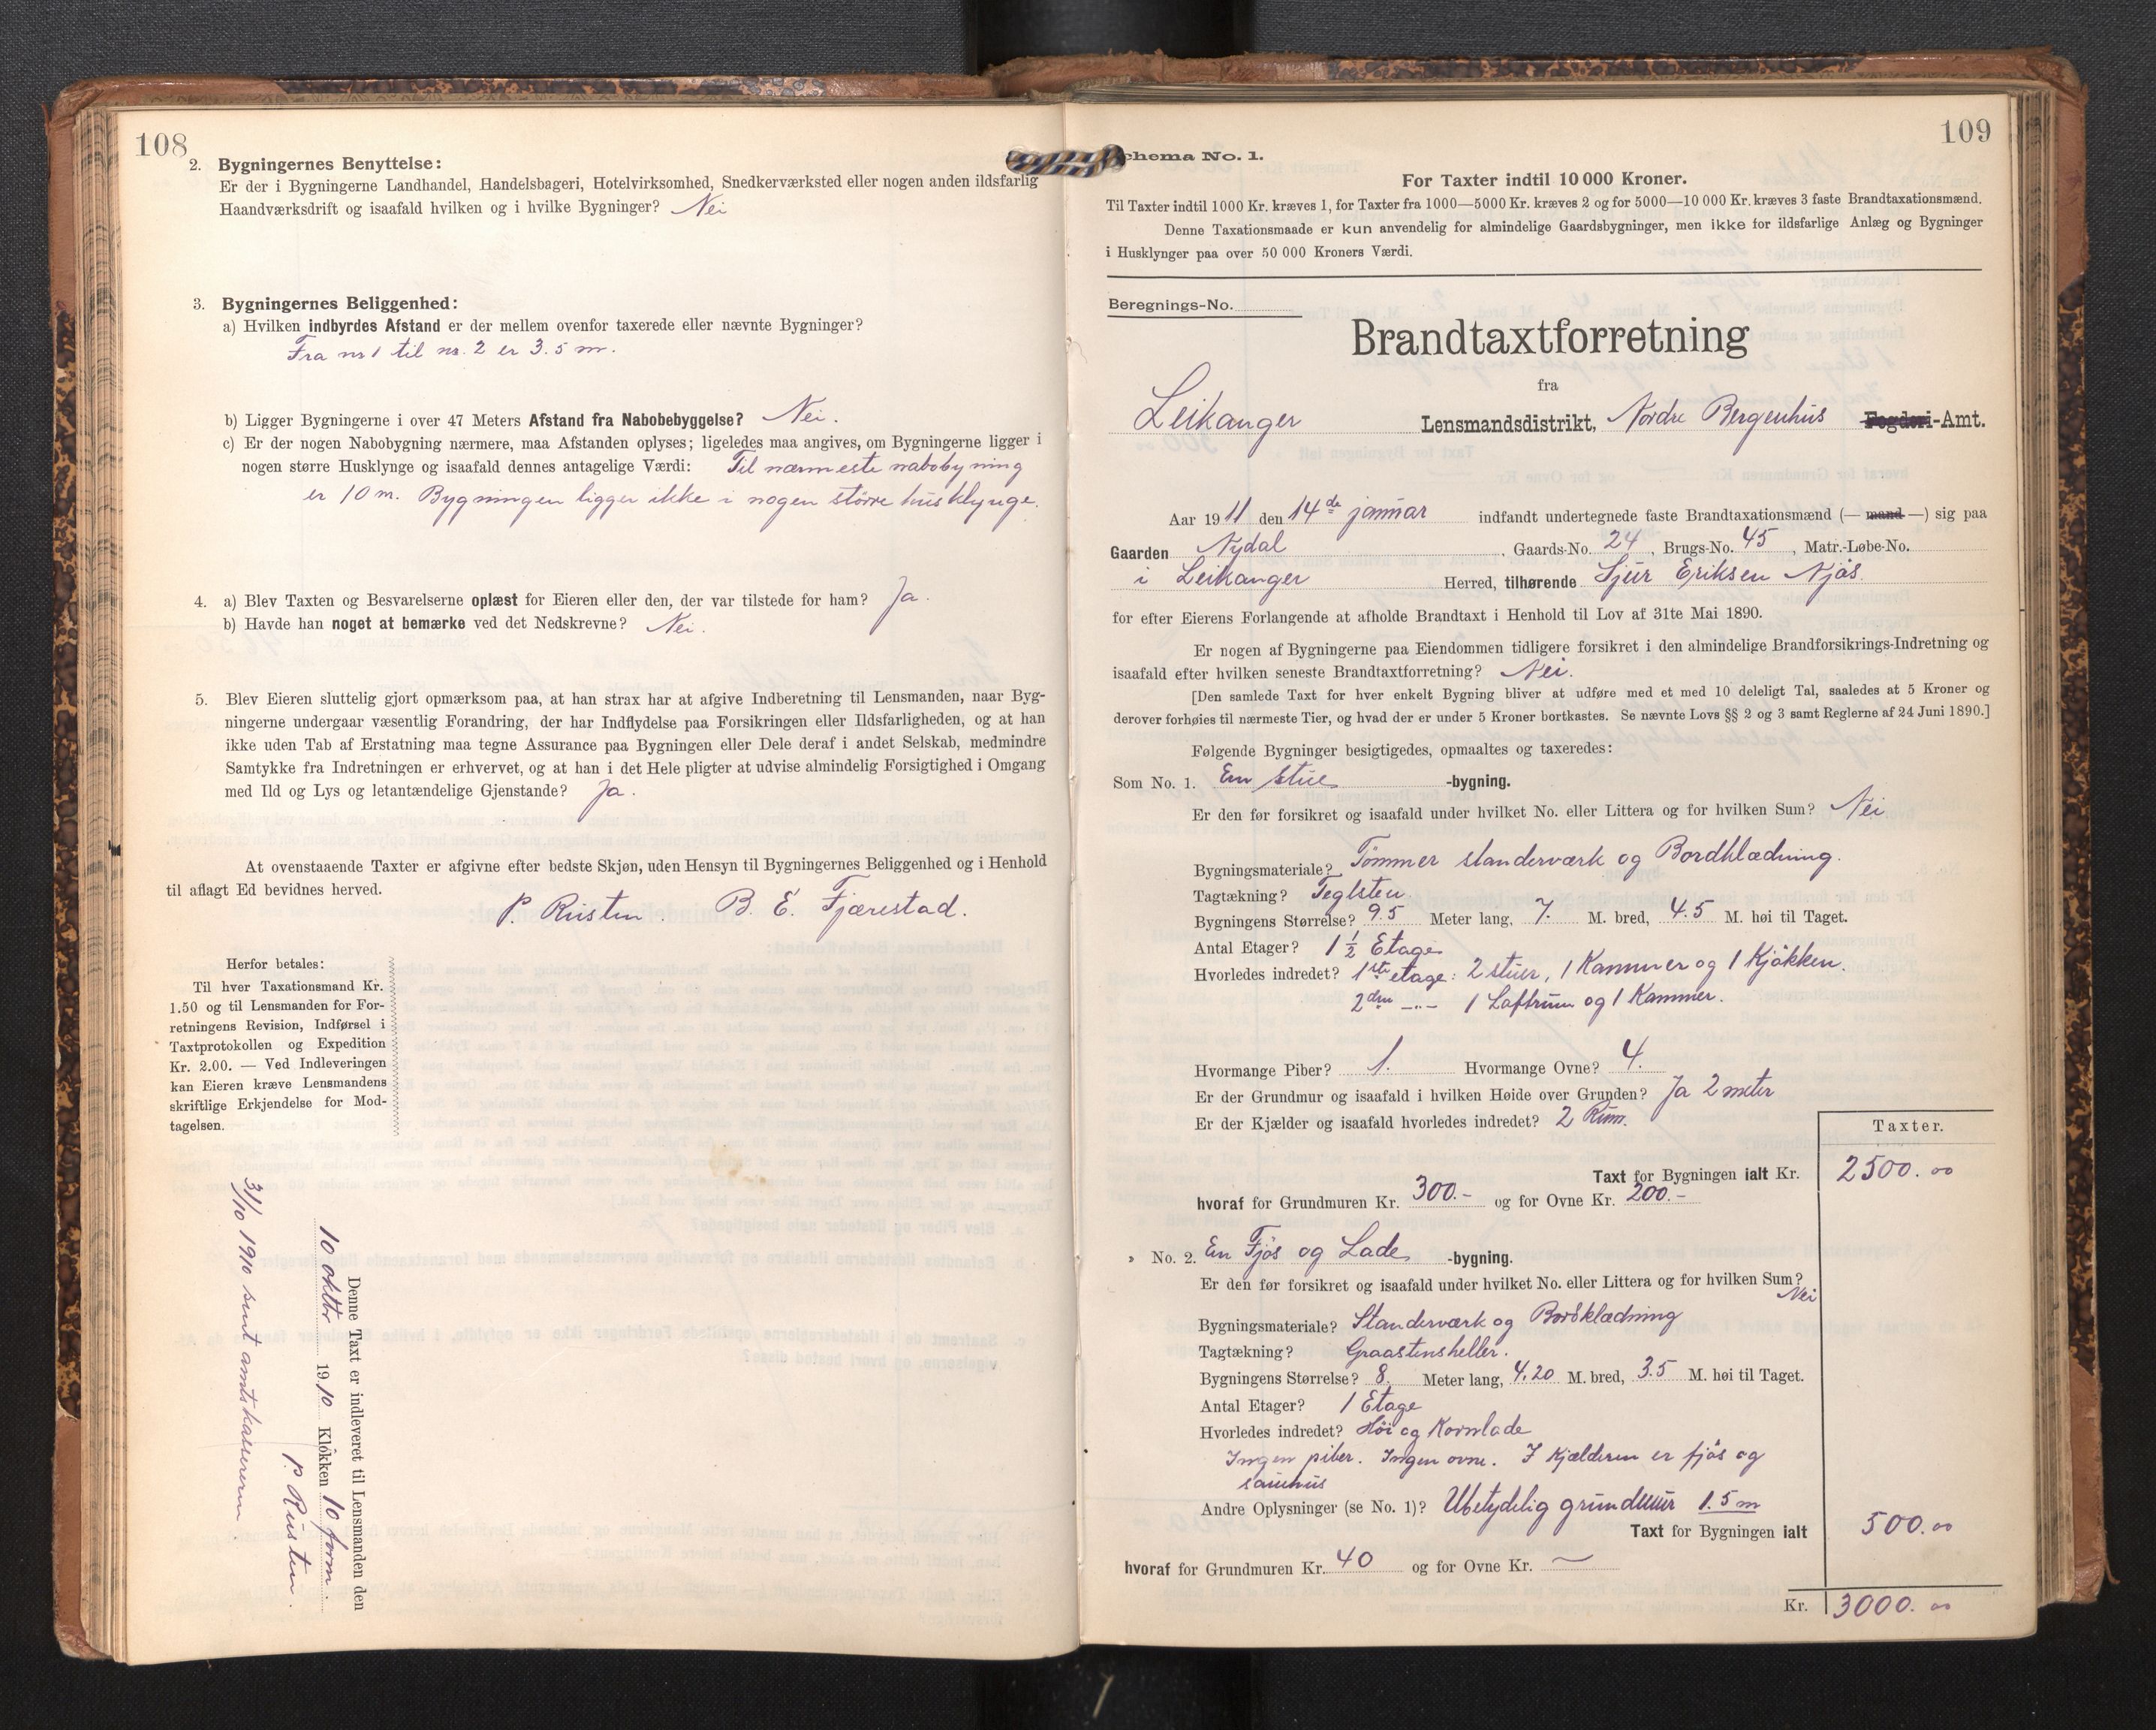 108
2. Bygningernes Benyttelse:
Er der i Bygningerne Landhandel, Handelsbageri, Hotelvirksomhed, Snedkerværksted eller nogen anden ildsfarlig
Haandværksdrift og isaafald hvilken og i hvilke Bygninger? Nei
3. Bygningernes Beliggenhed:
a) Hvilken indbyrdes Afstand er der mellem ovenfor taxerede eller nævnte Bygninger?
Fra nr 1 til nr. 2 er 3.5 m.
b) Ligger Bygningerne i over 47 Meters Afstand fra Nabobebyggelse? Nei.
c) Er der nogen Nabobygning nærmere, maa Afstanden oplyses; ligeledes maa angives, om Bygningerne ligger i
nogen større Husklynge og isaafald dennes antagelige Værdi: Til nærmeste nabobyning
er 10 m. Bygningen ligger ikke i nogen större husklynge.
4. a) Blev Taxten og Besvarelserne oplæst for Eieren eller den, der var tilstede for ham? Ja.
b) Havde han noget at bemærke ved det Nedskrevne? Nei.
5. Blev Eieren sluttelig gjort opmærksom paa, at han strax har at afgive Indberetning til Lensmanden, naar Byg-
ningerne undergaar væsentlig Forandring, der har Indflydelse paa Forsikringen eller Ildsfarligheden, og at han
ikke uden Tab af Erstatning maa tegne Assurance paa Bygningen eller Dele deraf i andet Selskab, medmindre
Samtykke fra Indretningen er erhvervet, og at han i det Hele pligter at udvise almindelig Forsigtighed i Omgang
med Ild og Lys og letantændelige Gjenstande? Ja.
At ovenstaaende Taxter er afgivne efter bedste Skjøn, uden Hensyn til Bygningernes Beliggenhed og i Henhold
til aflagt Ed bevidnes herved.
P. Risten. B. E. Fjærestad.
Herfor betales:
Til hver Taxationsmand Kr.
1.50 og til Lensmanden for For-
retningens Revision, Indførsel i
Taxtprotokollen og Expedition
Kr. 2.00. — Ved Indleveringen
kan Eieren kræve Lensmandens
skriftlige Erkjendelse for Mod-
tagelsen.
Denne Taxt er indleveret til Lensmanden den
10 oktbr 1910 Klokken 10 form.
P. Rusten.
31/10 1910 sent amtskassereren
109
Schema No. 1.
For Taxter indtil 10 000 Kroner.
Til Taxter indtil 1000 Kr. kræves 1, for Taxter fra 1000—5000 Kr. kræves 2 og for 5000—10 000 Kr. kræves 3 faste Brandtaxationsmænd.
Denne Taxationsmaade er kun anvendelig for almindelige Gaardsbygninger, men ikke for ildsfarlige Anlæg og Bygninger
i Husklynger paa over 50 000 Kroners Værdi.
Beregnings-No.
Brandtaxtforretning
fra
Leikanger Lensmandsdistrikt, Nordre Bergenhus Fogderi-Amt.
Aar 1911 den 14de januar indfandt undertegnede faste Brandtaxationsmænd (— mand —) sig paa
Gaarden Nydal, Gaards-No. 24, Brugs-No. 45, Matr.-Løbe-No.
i Leikanger Herred, tilhørende Sjur Eriksen Njøs.
for efter Eierens Forlangende at afholde Brandtaxt i Henhold til Lov af 31te Mai 1890.
Er nogen af Bygningerne paa Eiendommen tidligere forsikret i den almindelige Brandforsikrings-Indretning og
isaafald efter hvilken seneste Brandtaxtforretning? Nei.
[Den samlede Taxt for hver enkelt Bygning bliver at udføre med et med 10 deleligt Tal, saaledes at 5 Kroner og
derover forhøies til nærmeste Tier, og hvad der er under 5 Kroner bortkastes. Se nævnte Lovs §§ 2 og 3 samt Reglerne af 24 Juni 1890.]
Følgende Bygninger besigtigedes, opmaaltes og taxeredes:
Som No. 1. En stue -bygning.
Er den før forsikret og isaafald under hvilket No. eller Littera og for hvilken Sum? Nei
Bygningsmateriale? Tömmer standerværk og Bordklædning.
Tagtækning? Teglsten.
Bygningens Størrelse? 9.5 Meter lang, 7. M. bred, 4.5 M. høi til Taget.
Antal Etager? 1 1/2 Etage
Hvorledes indredet? 1ste etage: 2 stuer, 1 Kammer og 1 Kjökken.
2den -"- 1 Loftrum og 1 Kammer.
Hvormange Piber? 1. Hvormange Ovne? 4.
Er der Grundmur og isaafald i hvilken Høide over Grunden? Ja 2 meter
Er der Kjælder og isaafald hvorledes indredet? 2 Rum.
Taxter.
Taxt for Bygningen ialt Kr. 2500.00
hvoraf for Grundmuren Kr. 300.- og for Ovne Kr. 200.-
» No. 2. En Fjös og Lade -bygning.
Er den før forsikret og isaafald under hvilket No. eller Littera og for hvilken Sum?
Nei
Bygningsmateriale? Standerværk og Bordklædning
Tagtækning? Graastensheller.
Bygningens Størrelse? 8. Meter lang, 4.20 M. bred, 3.5 M. høi til Taget.
Antal Etager? 1 Etage
Hvorledes indredet? Höi og Kornlade
Ingen piber. Ingen ovne. I Kjælderen er fjös og
sauhus
Andre Oplysninger (se No. 1)? Ubetydelig grundmur 1.5 m
Taxt for Bygningen ialt 500.00
hvoraf for Grundmuren Kr. 40 og for Ovne Kr. —
Kr. 3000.00